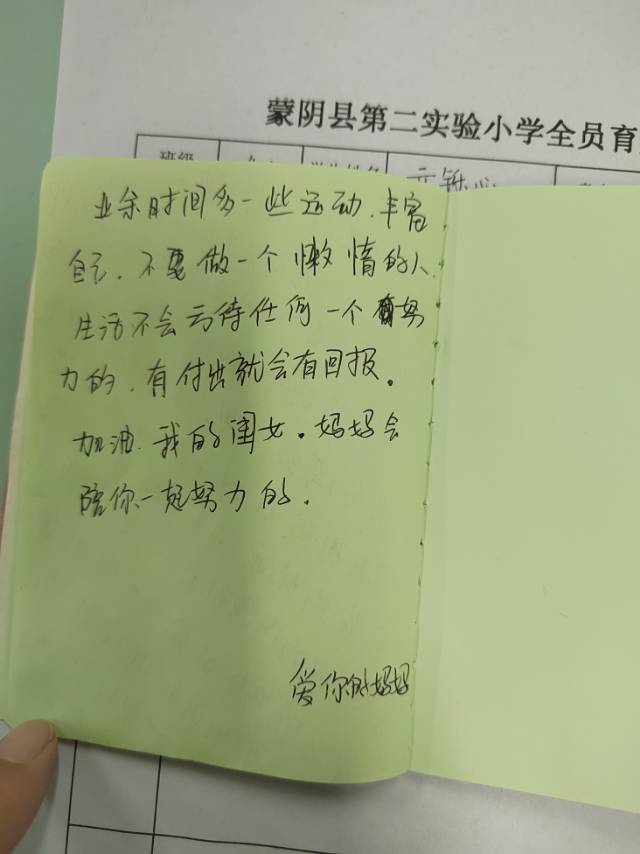 蒙阴县第二实验小学全员育
班级
业余时间多一些运动.丰富
自己.不要做一个懒惰的人.
生活不会亏待任何一个努
力的.有付出就会有回报。
加油.我的闺女。妈妈会
陪你一起努力的.
爱你的妈妈